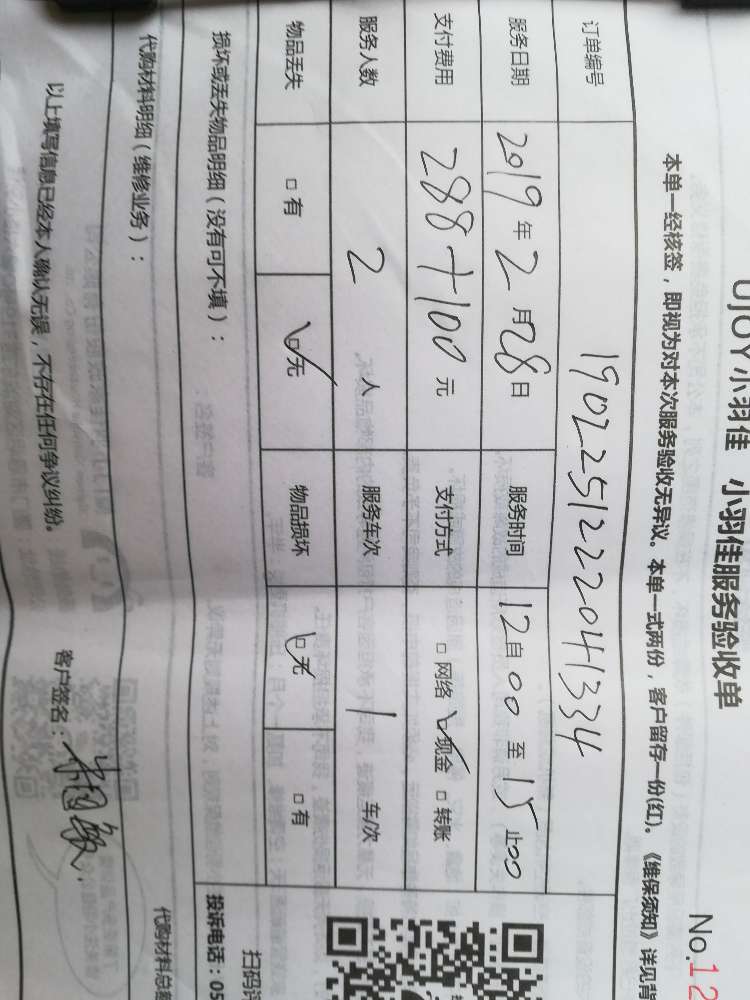 UJOY小羽佳 小羽佳服务验收单
No.12
本单一经核签，即视为对本次服务验收无异议。本单一式两份，客户留存一份(红)。《维保须知》详见背
订单编号 190225122204 1334
服务日期 2019年2月28日 服务时间 12自00至15止00
支付费用 288+100元 支付方式 □网络 ☑现金 □转账
服务人数 2人 服务车次 1车/次
物品丢失 □有 ☑无 物品损坏 ☑无 □有
损坏或丢失物品明细（没有可不填）：
投诉电话：05
代购材料明细（维修业务）：
代购材料总额
以上填写信息已经本人确认无误，不存在任何争议纠纷。 客户签名：